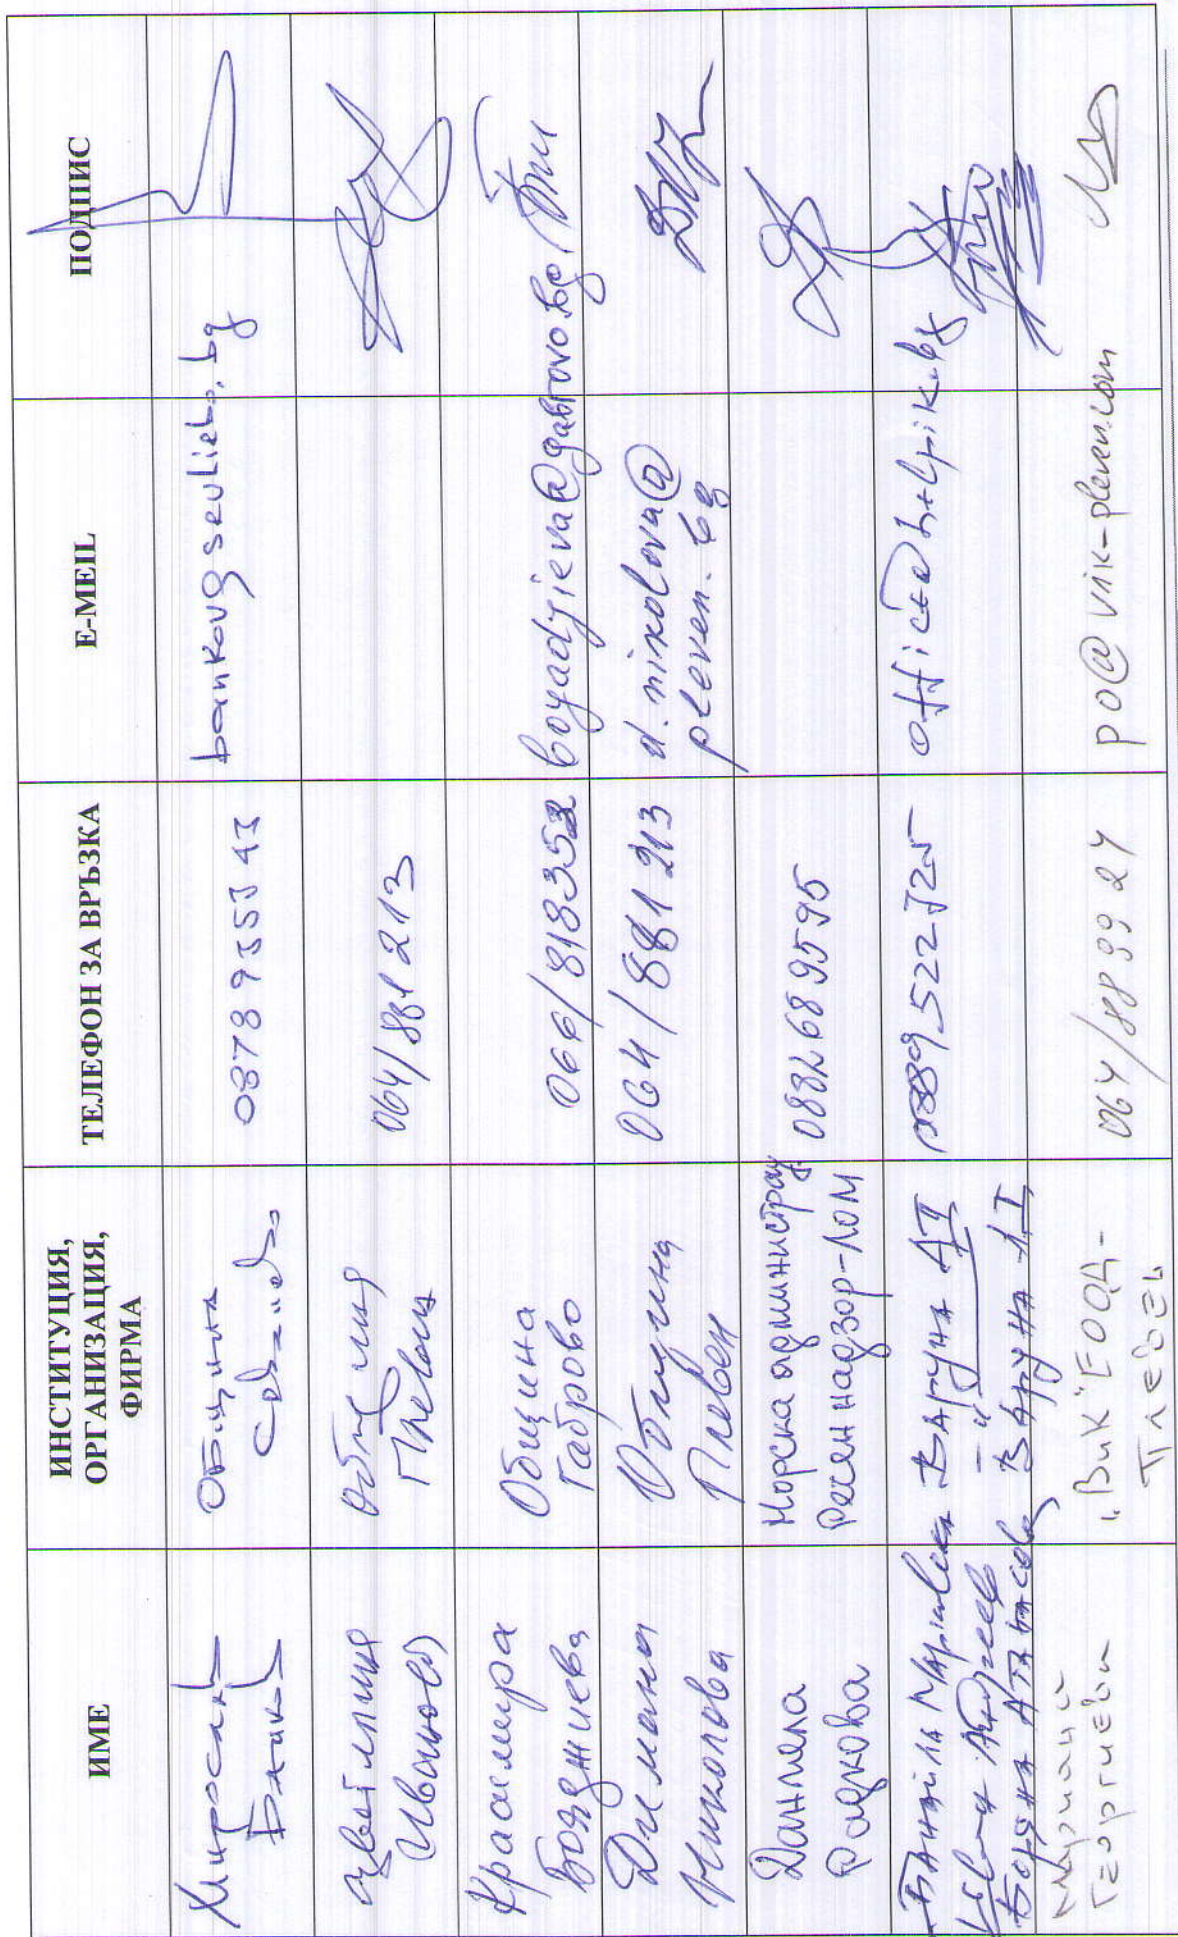 ИМЕ
ИНСТИТУЦИЯ,
ОРГАНИЗАЦИЯ,
ФИРМА
ТЕЛЕФОН ЗА ВРЪЗКА
E-MEIL
ПОДПИС
Мирослав
Банков
Община
Севлиево
bankov@sevlievo.bg
Цветелина
Иванова
Община
Плевен
064/881 213
Красимира
Бояджиева
Община
Габрово
066/818352
boyadjieva@gabrovo.bg
Диляна
Николова
Община
Плевен
064/881 213
d.nikolova@
pleven.bg
Даниела
Радкова
Морска админист
Речен надзор-Лом
088268 9595
Варуна
-"-
Боряна Атанасова
Варуна
Мариана
Георгиева
"ВиК" ЕООД -
Плевен
064/88 99 24
po@vik-pleven.com